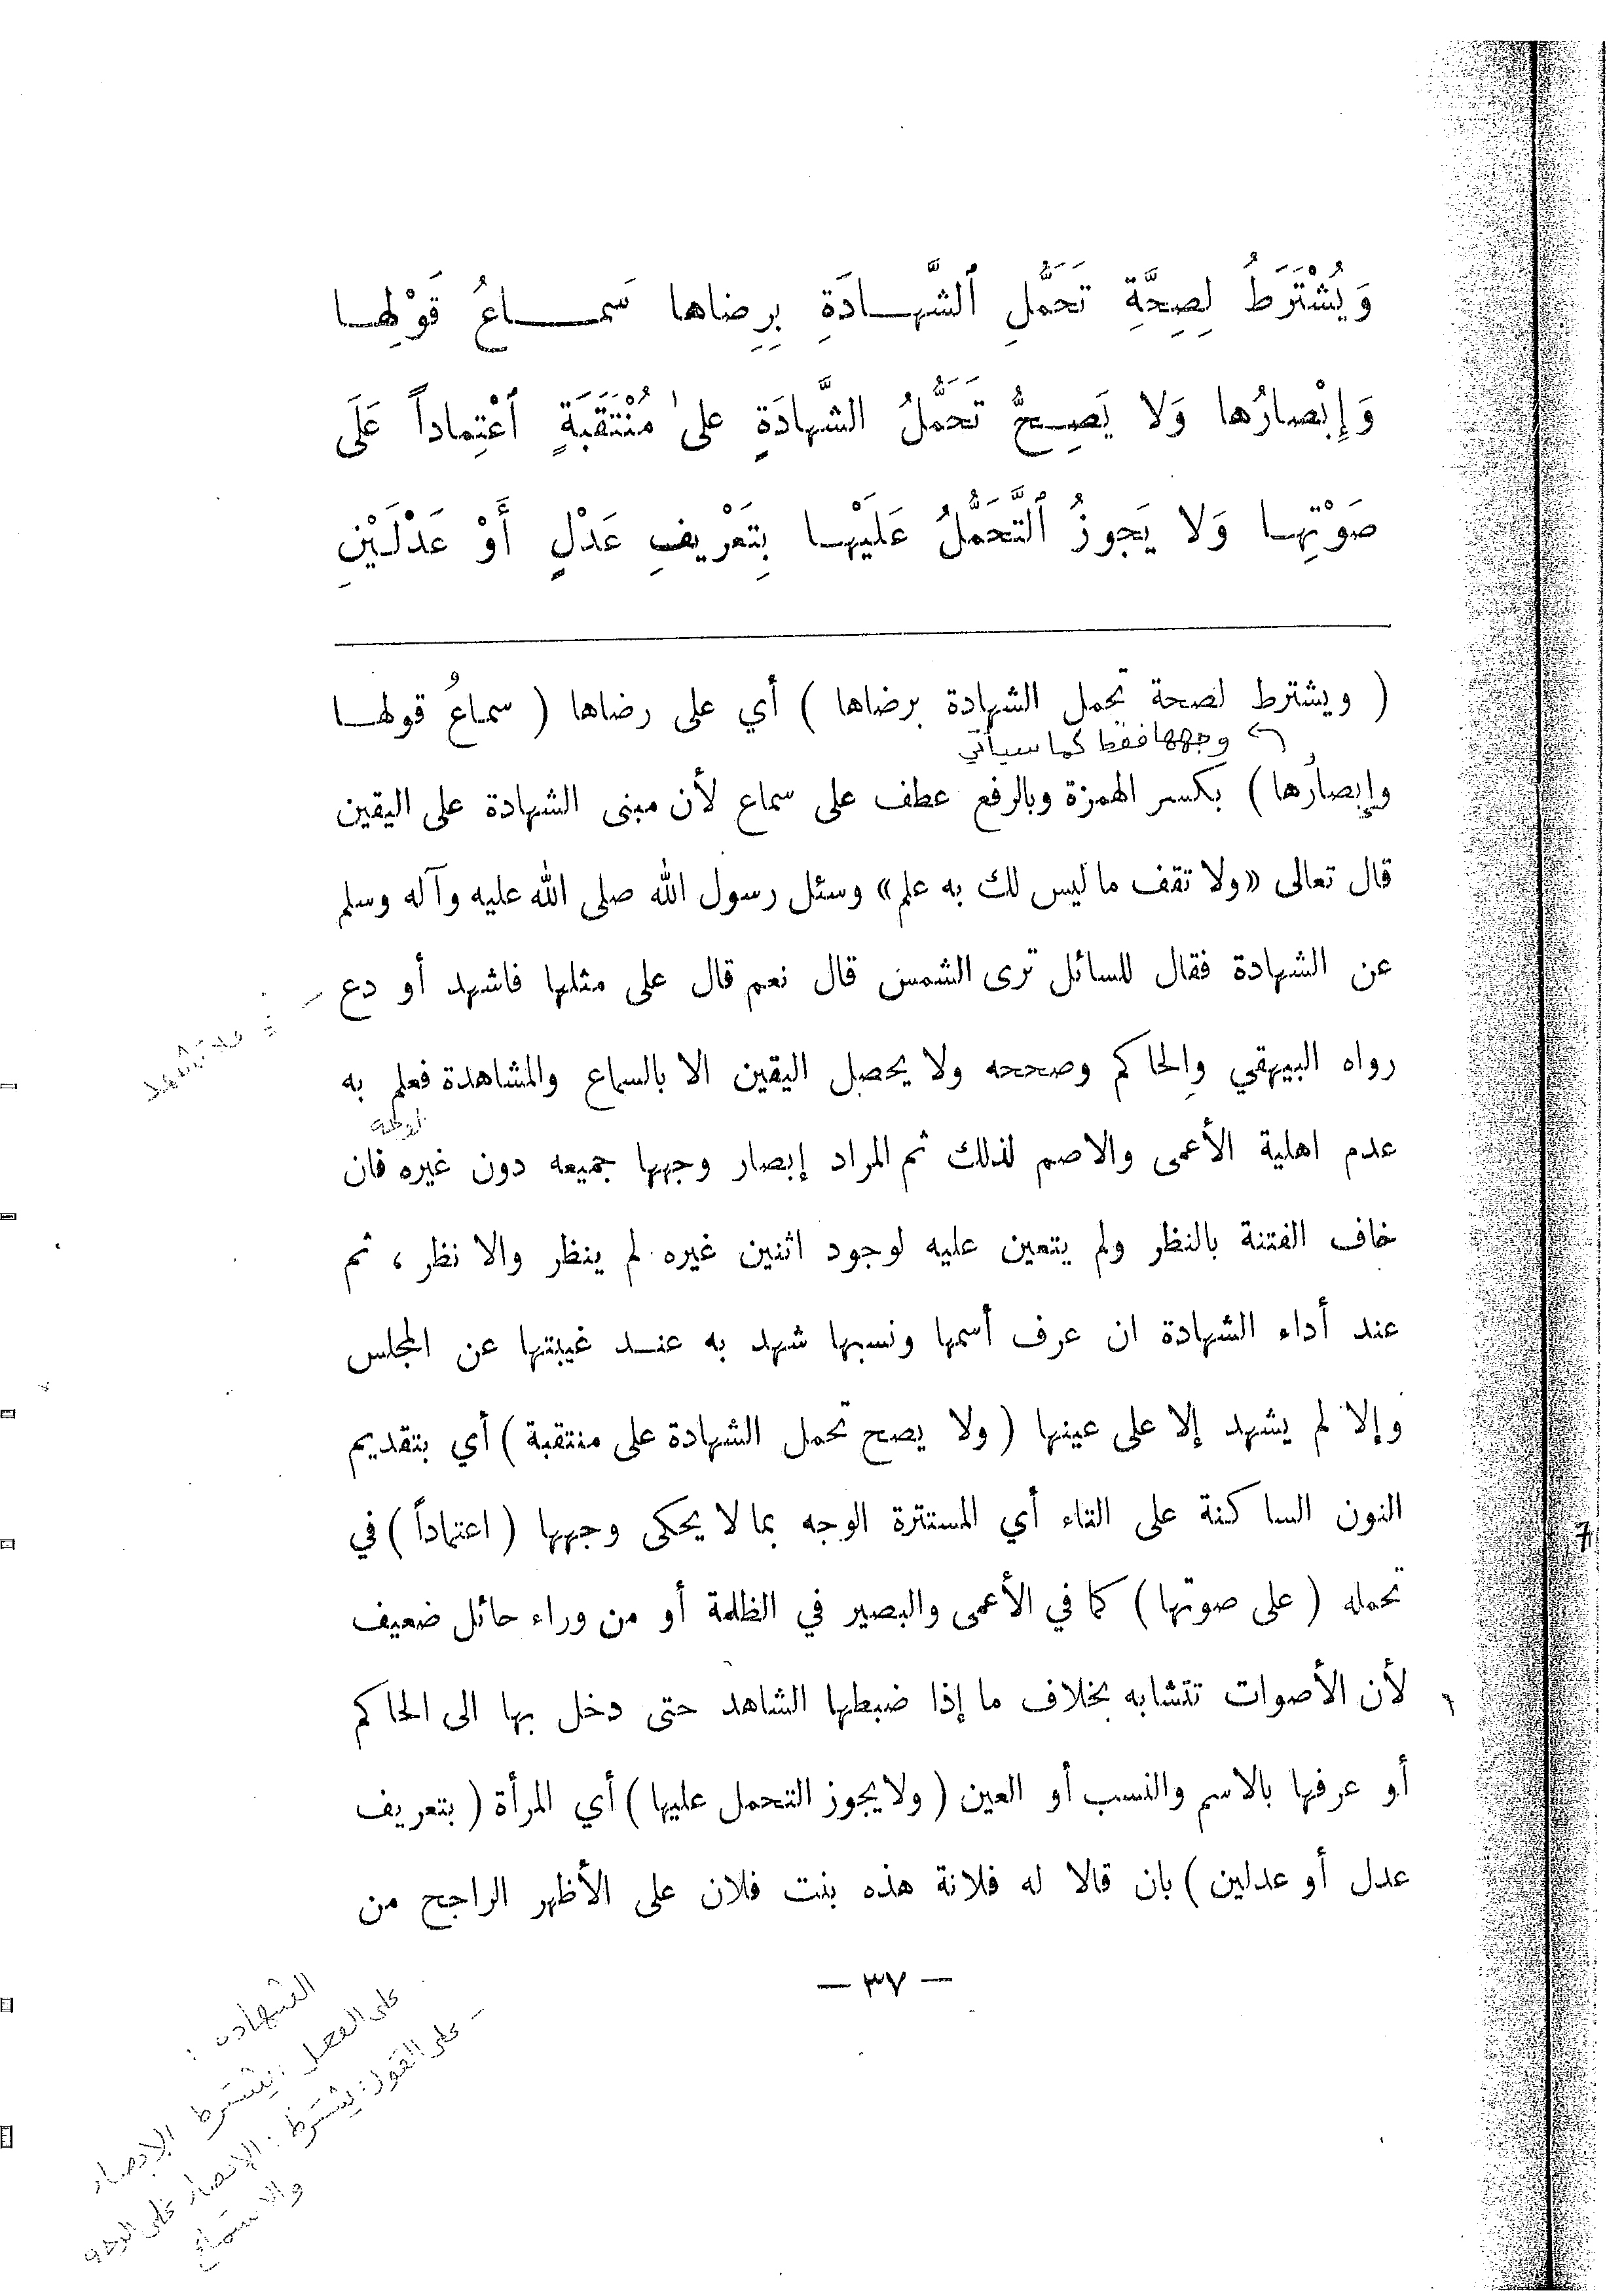 وَيُشْتَرَطُ لِصِحَّةِ تَحَمُّلِ ٱلشَّهَادَةِ بِرِضاها سَماعُ قَوْلِها
وَإِبْصارُها وَلا يَصِحُّ تَحَمُّلُ الشَّهادَةِ على مُنْتَقِبَةٍ ٱعْتِماداً عَلَى
صَوْتِها وَلا يَجوزُ ٱلتَّحَمُّلُ عَلَيْها بِتَعْريفِ عَدْلٍ أَوْ عَدْلَيْنِ
( ويشترط لصحة تحمل الشهادة برضاها ) أي على رضاها ( سماعُ قولها
وجهها فقط كما سيأتي
وإبصارُها ) بكسر الهمزة وبالرفع عطف على سماع لأن مبنى الشهادة على اليقين
قال تعالى «ولا تقف ما ليس لك به علم» وسئل رسول الله صلى الله عليه وآله وسلم
عن الشهادة فقال للسائل ترى الشمس قال نعم قال على مثلها فاشهد أو دع
رواه البيهقي والحاكم وصححه ولا يحصل اليقين الا بالسماع والمشاهدة فعلم به
عدم اهلية الأعمى والاصم لذلك ثم المراد إبصار وجهها جميعه دون غيره فان
خاف الفتنة بالنظر ولم يتعين عليه لوجود اثنين غيره لم ينظر والا نظر ، ثم
عند أداء الشهادة ان عرف أسمها ونسبها شهد به عند غيبتها عن المجلس
وإلا لم يشهد إلا على عينها ( ولا يصح تحمل الشهادة على منتقبة ) أي بتقديم
النون الساكنة على التاء أي المستترة الوجه بما لا يحكى وجهها ( اعتماداً ) في
تحمله ( على صوتها ) كما في الأعمى والبصير في الظلمة أو من وراء حائل ضعيف
لأن الأصوات تتشابه بخلاف ما إذا ضبطها الشاهد حتى دخل بها الى الحاكم
أو عرفها بالاسم والنسب أو العين ( ولا يجوز التحمل عليها ) أي المرأة ( بتعريف
عدل أو عدلين ) بان قالا له فلانة هذه بنت فلان على الأظهر الراجح من
— ٣٧ —
الشهادة :
على الفعل : يشترط الإبصار
- على القول : يشترط : الإبصار على الوجه
والاسماع